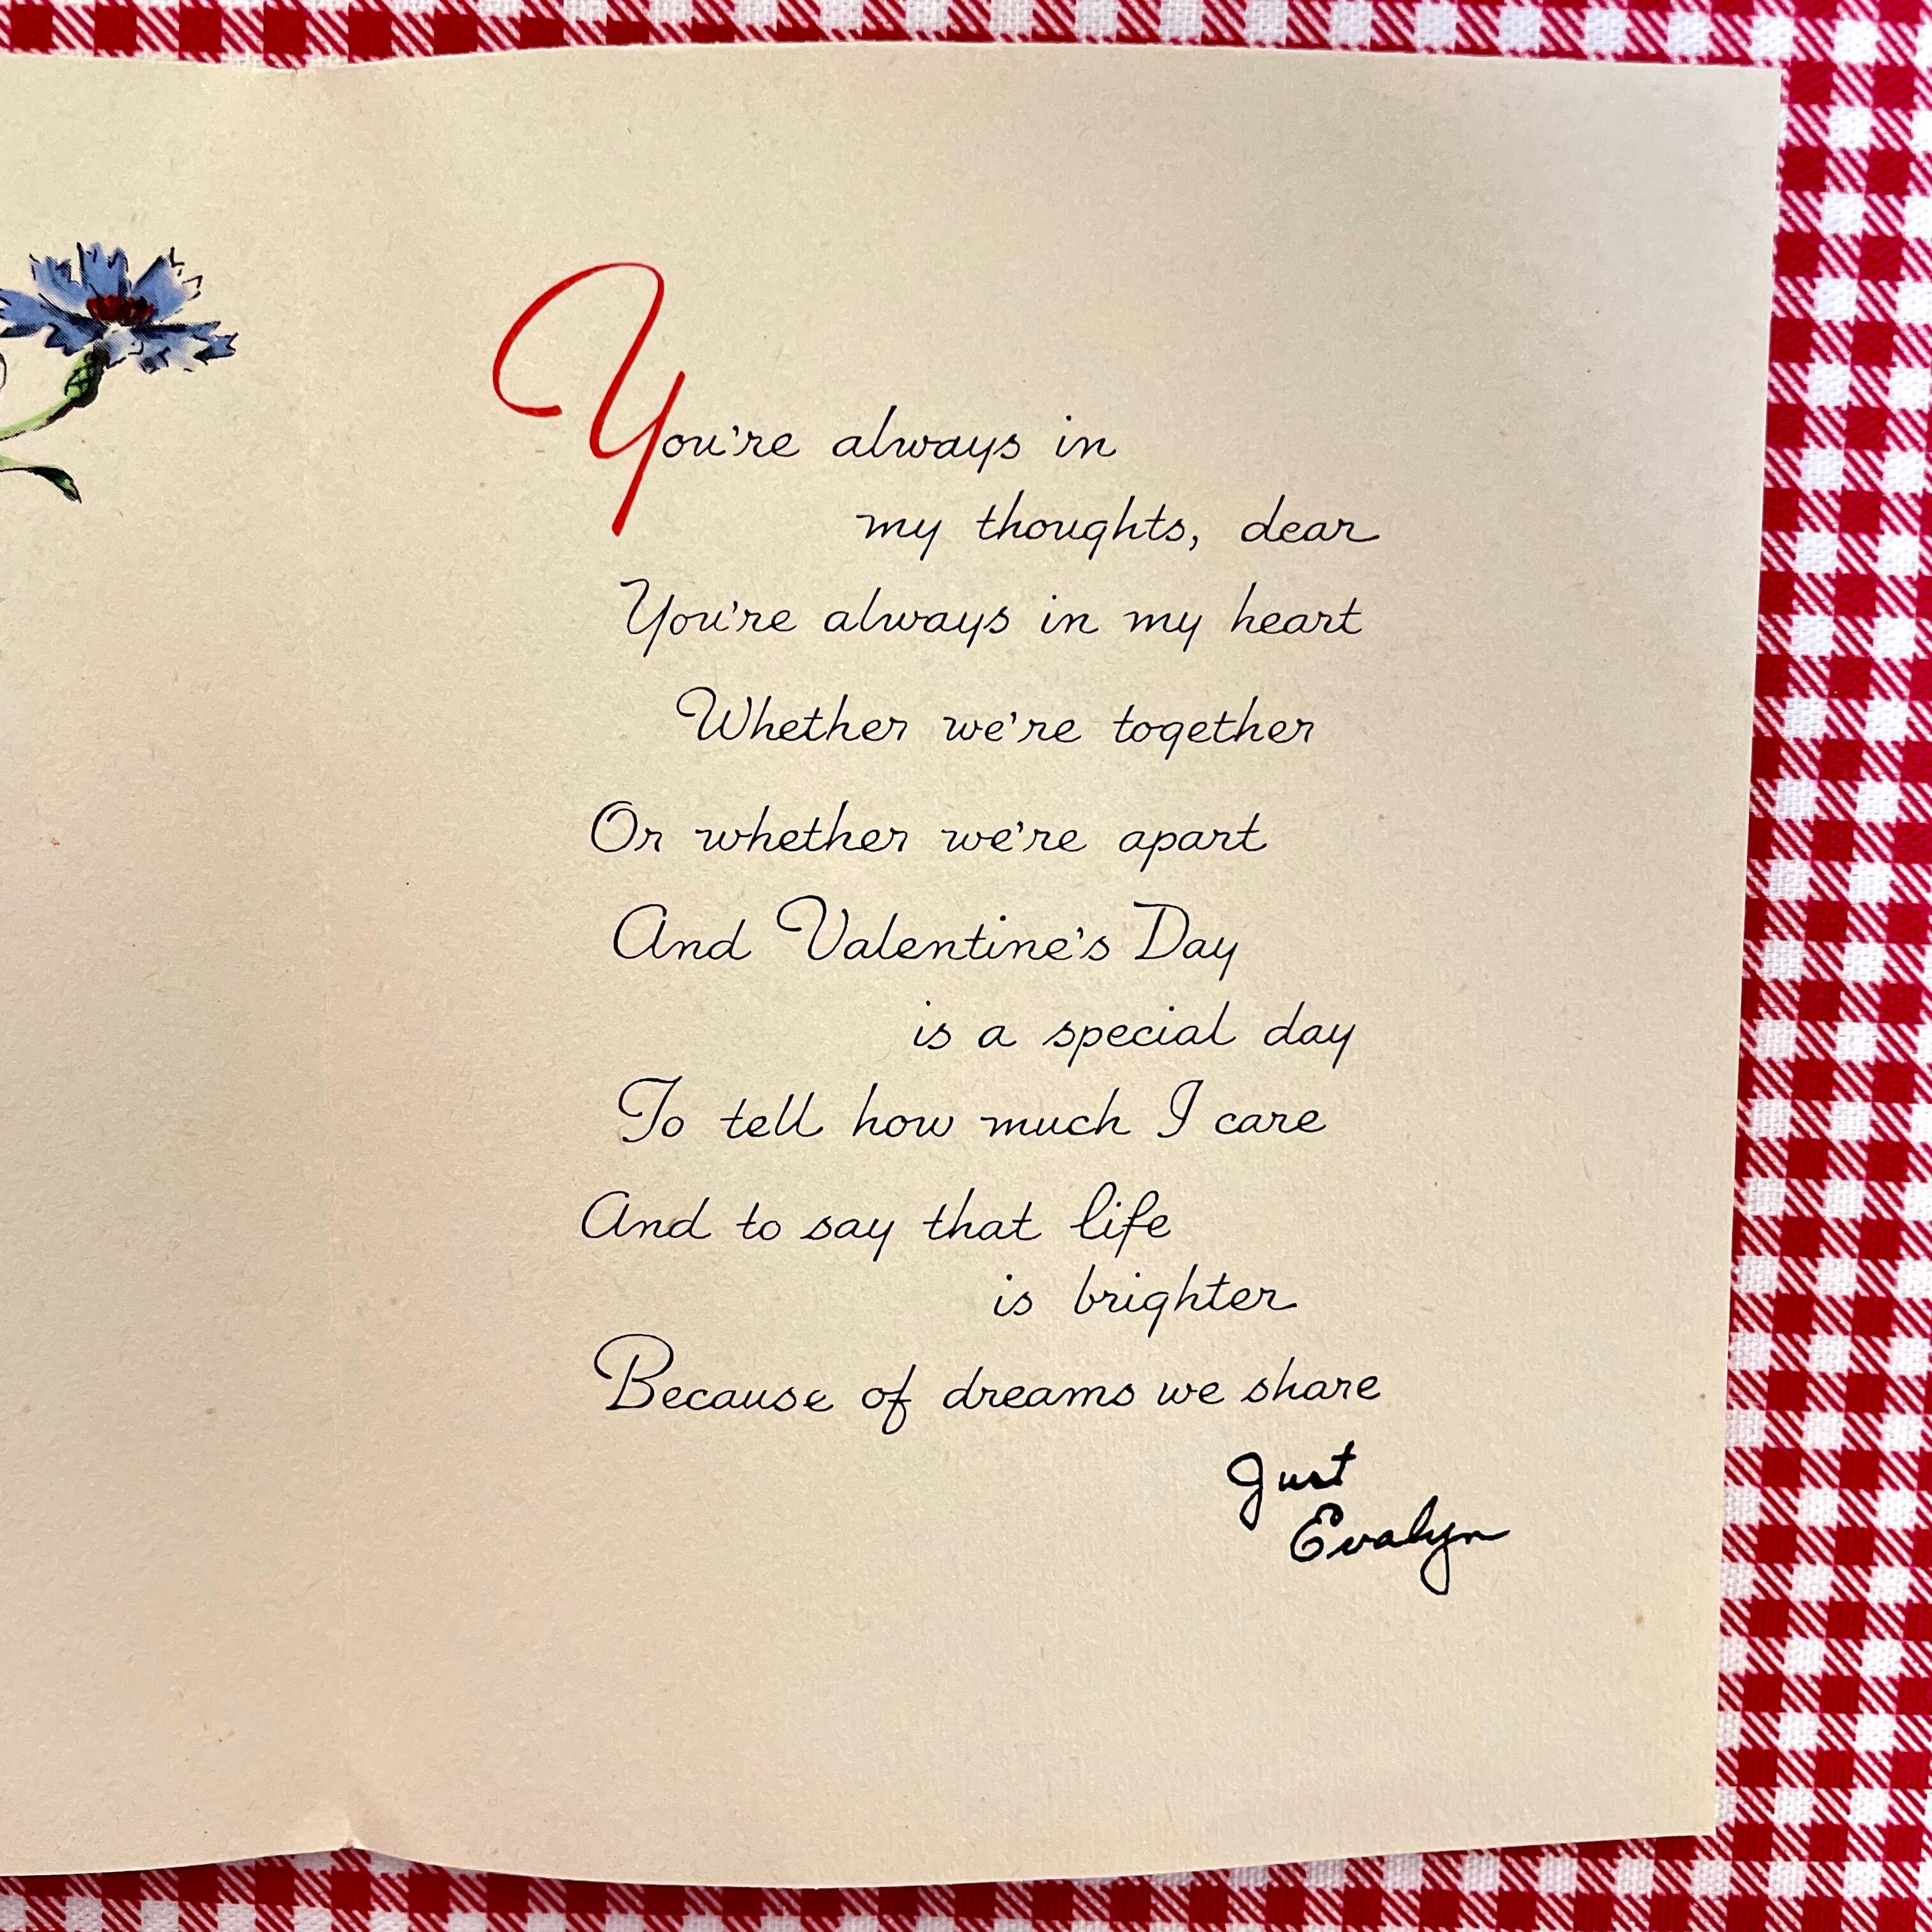 You're always in
my thoughts, dear
You're always in my heart
Whether we're together
Or whether we're apart
And Valentine's Day
is a special day
To tell how much I care
And to say that life
is brighter
Because of dreams we share
Just
Evalyn